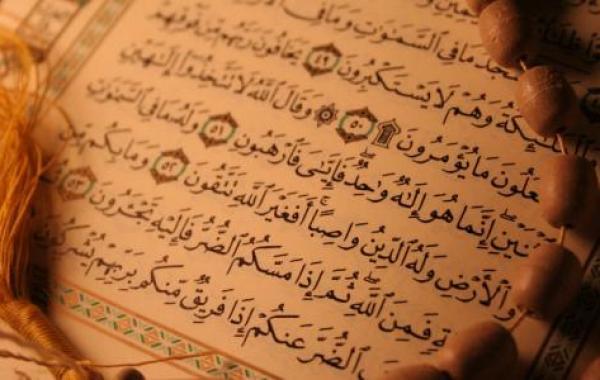 مَا فِى ٱلسَّمَـٰوَٰتِ وَمَا فِى
وَهُمْ لَا يَسْتَكْبِرُونَ ٤٩ يَخَافُونَ رَبَّهُم مِّن فَوْقِهِمْ
عَلُونَ مَا يُؤْمَرُونَ ۩ ٥٠ ۞ وَقَالَ ٱللَّهُ لَا تَتَّخِذُوٓا۟ إِلَـٰهَيْنِ
نَيْنِ إِنَّمَا هُوَ إِلَـٰهٌ وَٰحِدٌ فَإِيَّـٰىَ فَٱرْهَبُونِ ٥١ وَلَهُۥ مَا فِى ٱلسَّمَـٰوَٰتِ
وَٱلْأَرْضِ وَلَهُ ٱلدِّينُ وَاصِبًا ۚ أَفَغَيْرَ ٱللَّهِ تَتَّقُونَ ٥٢ وَمَا بِكُم مِّن
ةٍ فَمِنَ ٱللَّهِ ۖ ثُمَّ إِذَا مَسَّكُمُ ٱلضُّرُّ فَإِلَيْهِ تَجْـَٔرُونَ ٥٣
ٱلضُّرَّ عَنكُمْ إِذَا فَرِيقٌ مِّنكُم بِرَبِّهِمْ يُشْرِكُونَ